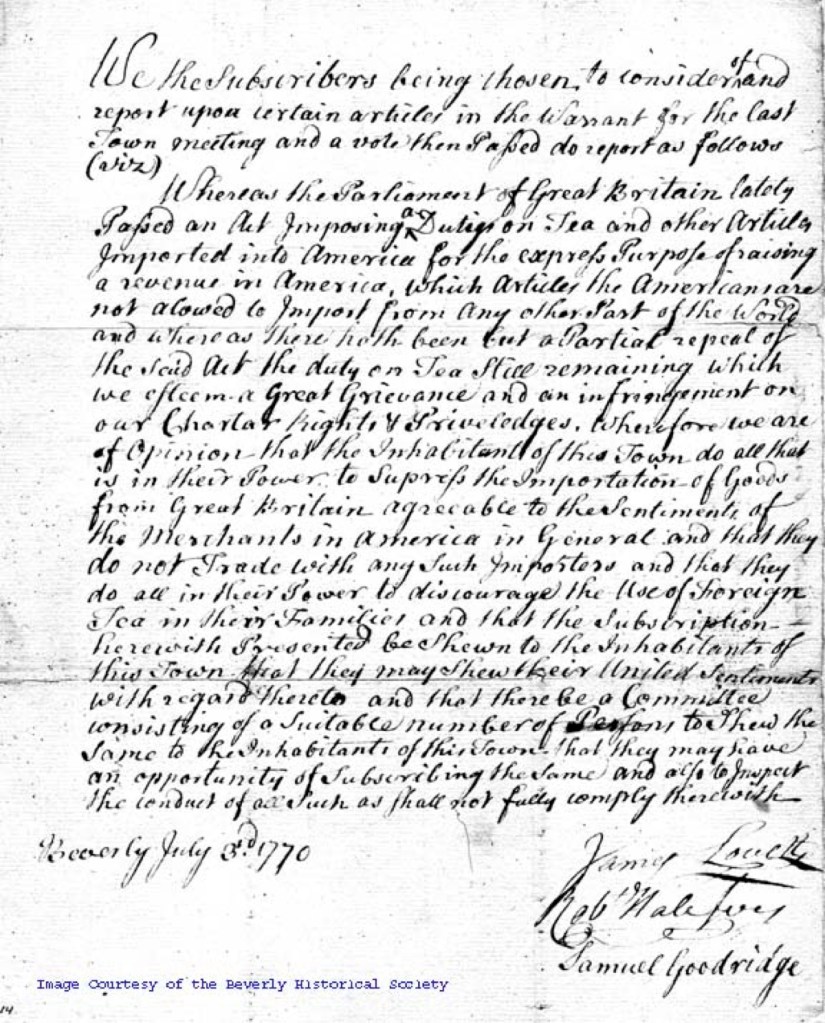 We the Subscribers being chosen to consider of and
report upon certain articles in the Warrant for the last
Town meeting and a vote then Passed do report as follows
(viz)
Whereas the Parliament of Great Britain lately
Passed an Act Imposing a Duties on Tea and other Articles
Imported into America for the express Purpose of raising
a revenue in America, which Articles the Americans are
not alowed to Import from Any other Part of the World
and whereas there hath been but a Partial repeal of
the said Act the duty on Tea Still remaining which
we esteem a Great Grievance and an infringement on
our Charter Rights & Priveledges. Wherefore we are
of Opinion that the Inhabitants of this Town do all that
is in their Power to Supress the Importation of Goods
from Great Britain agreeable to the Sentiments of
the Merchants in America in General and that they
do not Trade with any Such Importers and that they
do all in their Power to discourage the Use of Foreign
Tea in their Families and that the Subscription
herewith Presented be Shewn to the Inhabitants of
this Town that they may Shew their United Sentiments
with regard thereto and that there be a Committee
consisting of a Suitable number of Persons to Shew the
Same to the Inhabitants of this Town that they may have
an opportunity of Subscribing the Same and also to Inspect
the conduct of all Such as Shall not fully comply therewith
Beverly July 3.d 1770
James Lovett
Robt
Samuel Goodridge
Image Courtesy of the Beverly Historical Society
14